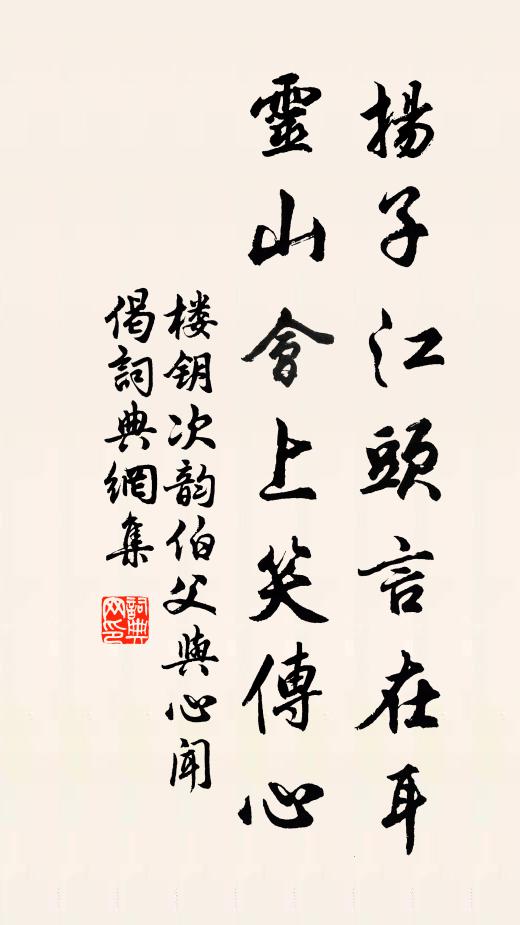 揚子江頭言在耳
靈山會上笑傳心
楼钥次韵伯父與心闻
偈詞典網集
詞典网印